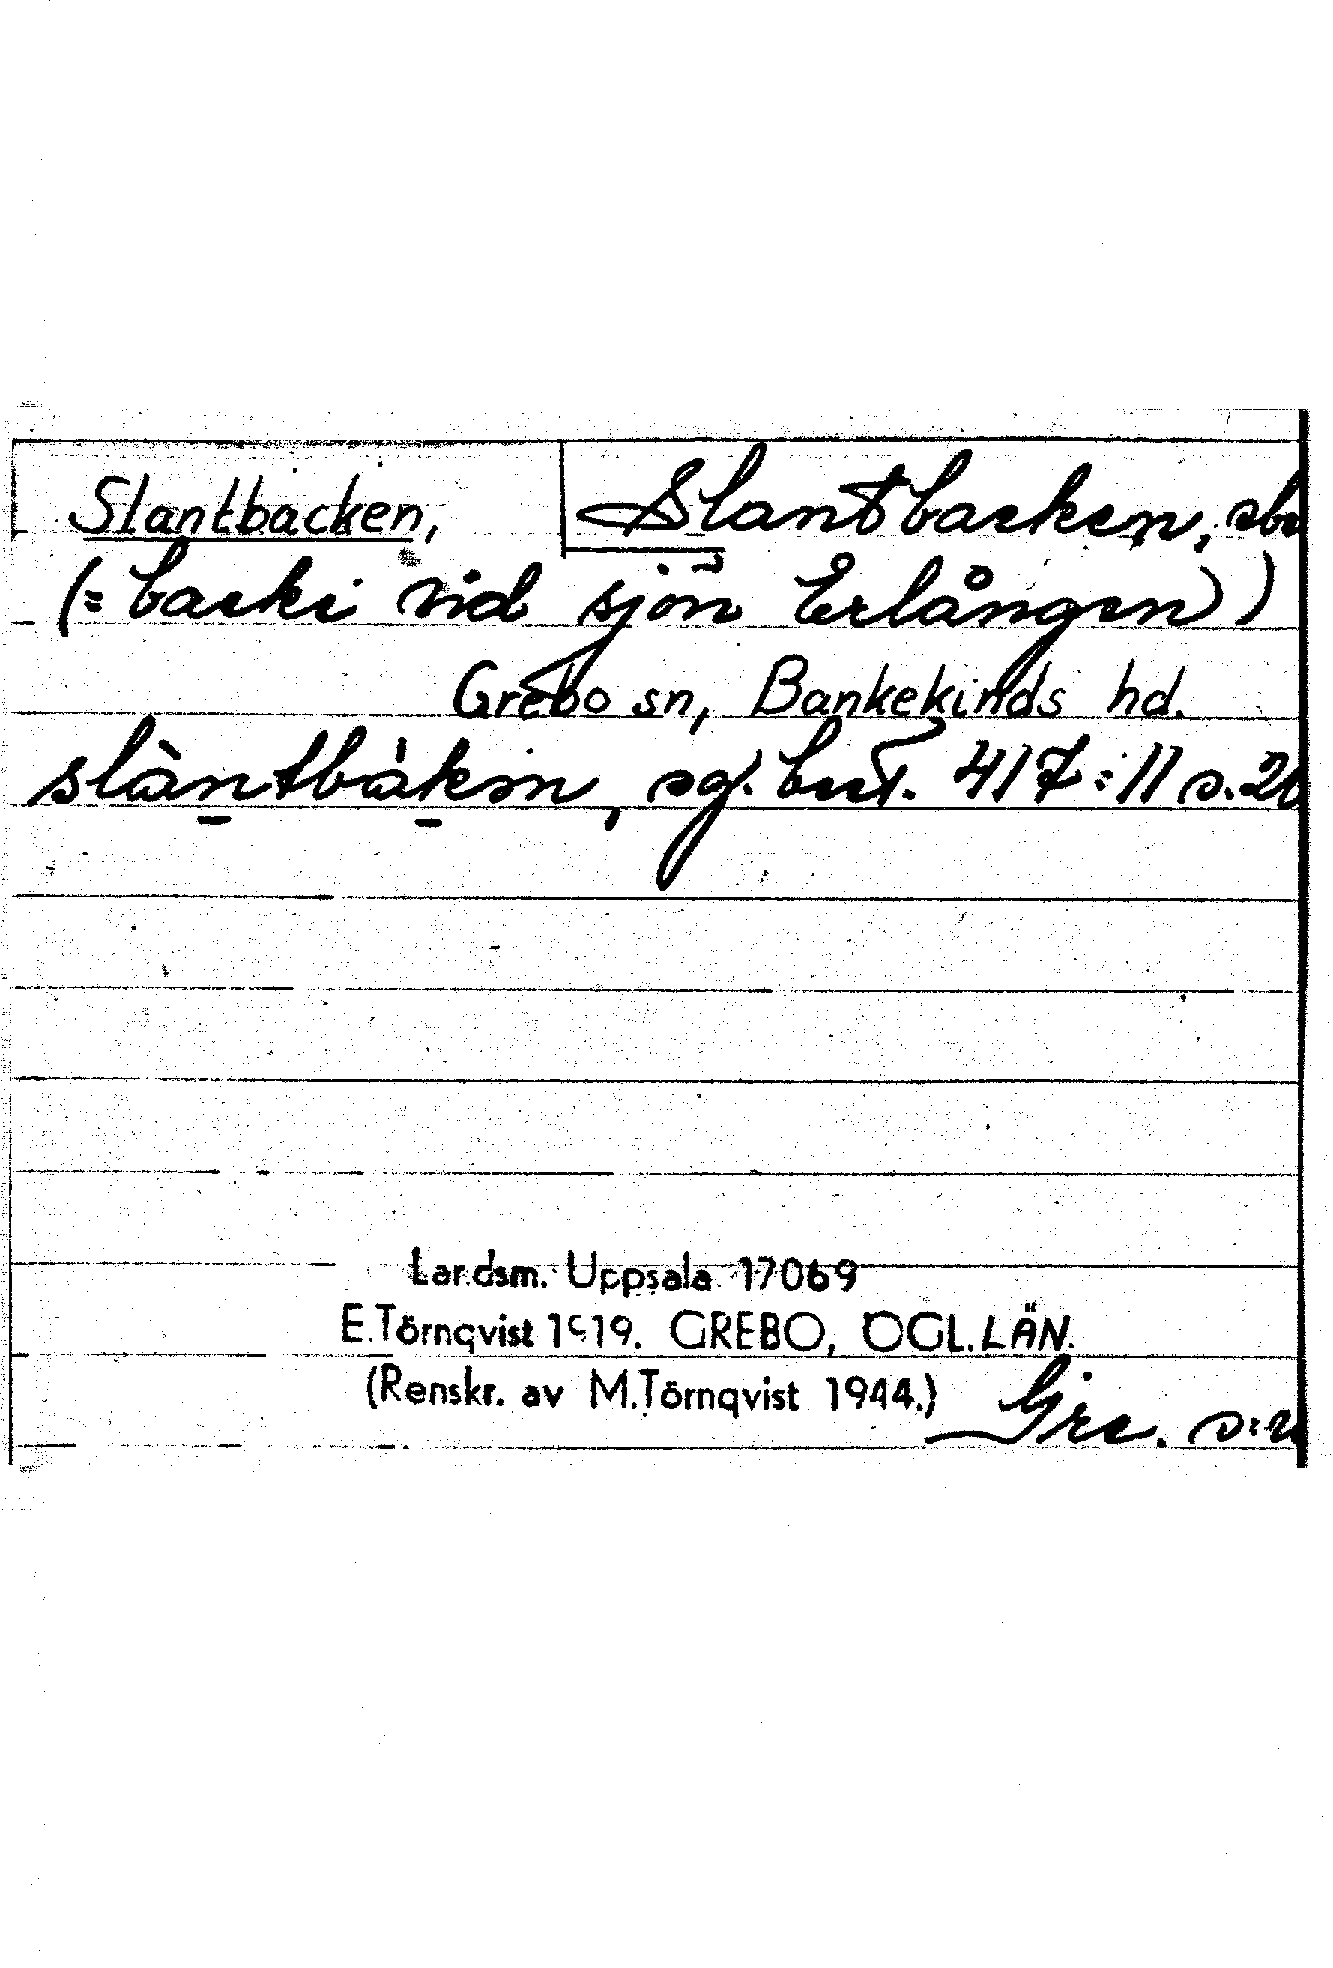 Slantbacken, Slantbacken,
(= backe vid sjön Erlången))
Grebo sn, Bankekinds hd.
slàntbàkən, sg. best. 417:11 s.
Landsm. Uppsala 17069
E.Törnqvist 1919. GREBO, ÖGL.LÄN.
(Renskr. av M.Törnqvist 1944.)
Gre. s:n